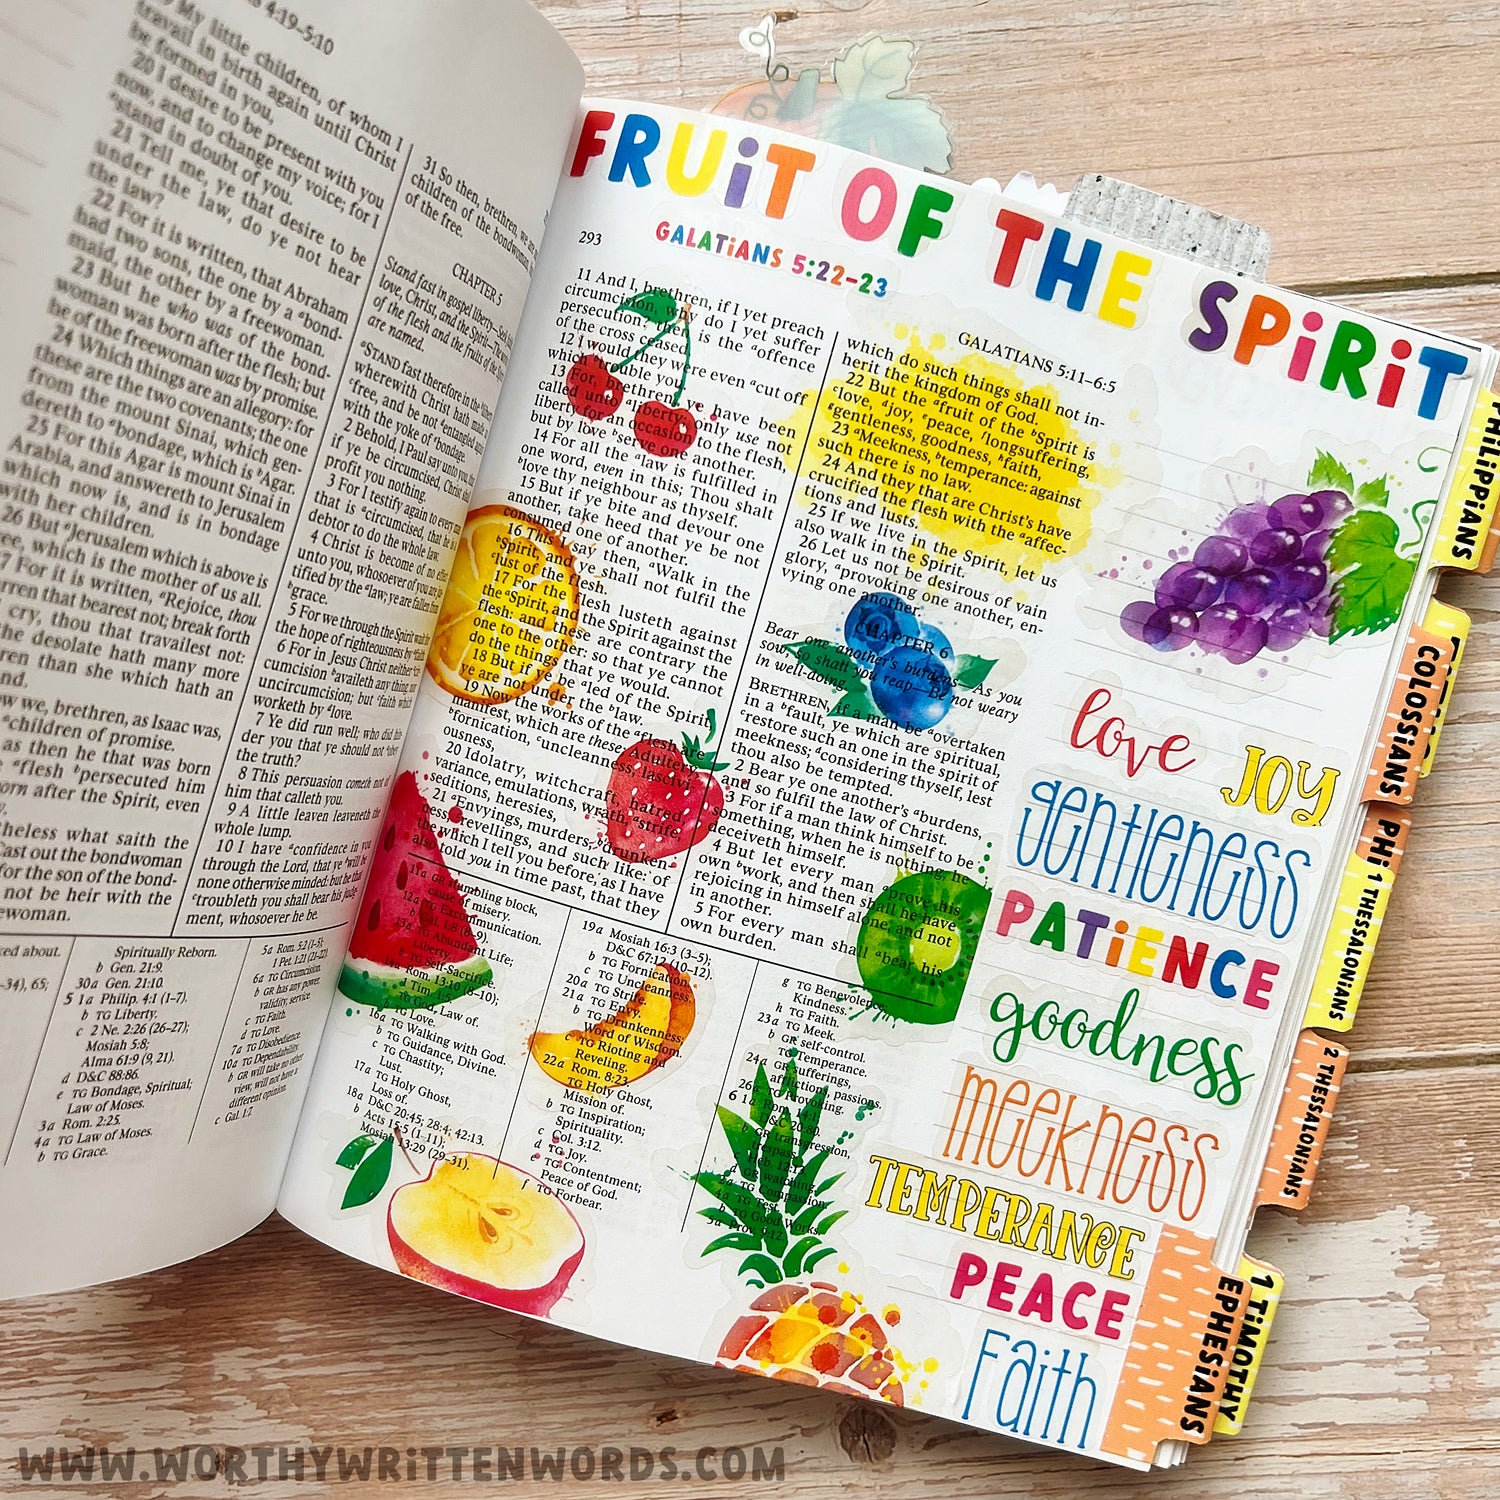 S 4:19–5:10
My little children, of whom I
travail in birth again until Christ
be formed in you,
20 I desire to be present with you
now, and to change my voice; for I
ᵃstand in doubt of you.
21 Tell me, ye that desire to be
under the law, do ye not hear
the law?
22 For it is written, that Abraham
had two sons, the one by a ᵃbond-
maid, the other by a freewoman.
23 But he who was of the bond-
woman was born after the flesh; but
he of the freewoman was by promise.
24 Which things are an allegory: for
these are the two covenants; the one
from the mount Sinai, which gen-
dereth to ᵃbondage, which is ᵇAgar.
25 For this Agar is mount Sinai in
Arabia, and answereth to Jerusalem
which now is, and is in bondage
with her children.
26 But ᵃJerusalem which is above is
free, which is the mother of us all.
27 For it is written, ᵃRejoice, thou
barren that bearest not; break forth
cry, thou that travailest not:
the desolate hath many more
children than she which hath an
we, brethren, as Isaac was,
ᵃchildren of promise.
as then he that was born
ᵃflesh ᵇpersecuted him
born after the Spirit, even
what saith the
Cast out the bondwoman
for the son of the bond-
not be heir with the
31 So then, brethren, we are
children of the bondwoman,
of the free.
CHAPTER 5
Stand fast in gospel liberty—Seek
love, Christ, and the Spirit—The
of the flesh and the fruits of the
are named.
ᵃSTAND fast therefore in the ᵇliberty
wherewith Christ hath made
ᶜfree, and be not ᵈentangled
with the yoke of ᵉbondage.
2 Behold, I Paul say unto you,
if ye be circumcised, Christ
profit you nothing.
3 For I testify again to every
that is ᵃcircumcised, that he is
debtor to do the whole law.
4 Christ is become of no effect
unto you, whosoever of you are
tified by the ᵃlaw; ye are fallen
ᵇgrace.
5 For we through the Spirit wait
the hope of righteousness by ᵃfaith
6 For in Jesus Christ neither
cumcision ᵇavaileth any thing
uncircumcision; but ᶜfaith which
worketh by ᵈlove.
7 Ye did run well; who did
der you that ye should not
the truth?
8 This persuasion cometh not
him that calleth you.
9 A little leaven leaveneth the
whole lump.
10 I have ᵃconfidence in you
through the Lord, that ye ᵇwill be
none otherwise minded: but he that
ᶜtroubleth you shall bear his
ment, whosoever he be.
Spiritually Reborn.
b Gen. 21:9.
30a Gen. 21:10.
5 1a Philip. 4:1 (1–7).
b TG Liberty.
c 2 Ne. 2:26 (26–27);
Mosiah 5:8;
Alma 61:9 (9, 21).
d D&C 88:86.
e TG Bondage, Spiritual;
Law of Moses.
3a Rom. 2:25.
4a TG Law of Moses.
b TG Grace.
5a Rom. 5:2 (1–5);
1 Pet. 1:21 (21–22).
6a TG Circumcision.
b GR has any power,
validity, service.
c TG Faith.
d TG Love.
7a TG Disobedience.
10a TG Dependability.
b GR will take no other
view, will not have a
different opinion.
c Gal. 1:7.
FRUiT OF THE SPiRiT
GALATiANS 5:22–23
293
GALATIANS 5:11–6:5
11 And I, brethren, if I yet preach
circumcision, why do I yet suffer
persecution? then is the ᵃoffence
of the cross ceased.
12 I would they were even ᵃcut off
which ᵇtrouble you.
13 For, brethren, ye have been
called unto ᵃliberty; only use not
liberty for an occasion to the flesh,
but by love ᵇserve one another.
14 For all the ᵃlaw is fulfilled in
one word, even in this; Thou shalt
ᵇlove thy neighbour as thyself.
15 But if ye bite and devour one
another, take heed that ye be not
consumed one of another.
16 This I say then, ᵃWalk in the
ᵇSpirit, and ye shall not fulfil the
ᶜlust of the flesh.
17 For the flesh lusteth against
the ᵃSpirit, and the Spirit against the
flesh: and these are contrary the
one to the other: so that ye cannot
do the things that ye would.
18 But if ye be ᵃled of the Spirit,
ye are not under the ᵇlaw.
19 Now the works of the ᵃflesh are
manifest, which are these; Adultery,
ᵇfornication, ᶜuncleanness, lascivi-
ousness,
20 Idolatry, witchcraft, hatred,
variance, emulations, wrath, ᵃstrife,
seditions, heresies,
21 ᵃEnvyings, murders, ᵇdrunken-
ness, ᶜrevellings, and such like: of
the which I tell you before, as I have
also told you in time past, that they
which do such things shall not in-
herit the kingdom of God.
22 But the ᵃfruit of the ᵇSpirit is
ᶜlove, ᵈjoy, ᵉpeace, ᶠlongsuffering,
ᵍgentleness, goodness, ʰfaith,
23 ᵃMeekness, ᵇtemperance: against
such there is no law.
24 And they that are Christ's have
crucified the flesh with the ᵃaffec-
tions and lusts.
25 If we live in the Spirit, let us
also walk in the Spirit.
26 Let us not be desirous of vain
glory, ᵃprovoking one another, en-
vying one another.
CHAPTER 6
Bear one another's burdens—As you
sow, so shall you reap—Be not weary
in well-doing.
BRETHREN, if a man be ᵃovertaken
in a ᵇfault, ye which are spiritual,
ᶜrestore such an one in the spirit of
meekness; ᵈconsidering thyself, lest
thou also be tempted.
2 Bear ye one another's ᵃburdens,
and so fulfil the law of Christ.
3 For if a man think himself to be
something, when he is nothing, he
deceiveth himself.
4 But let every man ᵃprove his
own ᵇwork, and then shall he have
rejoicing in himself alone, and not
in another.
5 For every man shall ᵃbear his
own burden.
11a GR stumbling block,
cause of misery.
12a TG Excommunication.
b Gal. 1:8 (8–9).
13a TG Abundant Life;
Liberty.
b TG Self-Sacrifice.
14a Rom. 13:10 (8–10);
1 Tim. 1:5.
TG God, Law of.
b TG Love.
16a TG Walking with God.
b TG Guidance, Divine.
c TG Chastity;
Lust.
17a TG Holy Ghost,
Loss of.
18a D&C 20:45; 28:4; 42:13.
b Acts 15:5 (1–11);
Mosiah 13:29 (29–31).
19a Mosiah 16:3 (3–5);
D&C 67:12 (10–12).
b TG Fornication.
c TG Uncleanness.
20a TG Strife.
21a TG Envy.
b TG Drunkenness;
Word of Wisdom.
c TG Rioting and
Reveling.
22a Rom. 8:23.
TG Holy Ghost,
Mission of.
b TG Inspiration;
Spirituality.
c Col. 3:12.
d TG Joy.
e TG Contentment;
Peace of God.
f TG Forbear.
g TG Benevolence;
Kindness.
h TG Faith.
23a TG Meek.
b GR self-control.
TG Temperance.
24a GR sufferings,
afflictions, passions.
26a TG Provoking.
6 1a Rom. 14:1
D&C 20:80.
b GR transgression,
trespass.
c Heb. 12:13.
d GR watching.
2a TG Compassion.
4a TG Test.
b TG Good Works.
5a Prov. 9:12.
love JOY
gentleness
PATiENCE
goodness
meekness
TEMPERANCE
PEACE
Faith
PHiLiPPiANS
COLOSSiANS
PHi
1 THESSALONiANS
2 THESSALONiANS
1 TiMOTHY
EPHESiANS
WWW.WORTHYWRITTENWORDS.COM